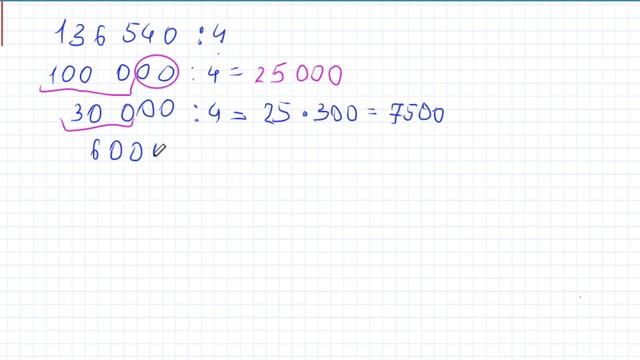 136 540 : 4
100 000 : 4 = 25 000
30 000 : 4 = 25 • 300 = 7500
600